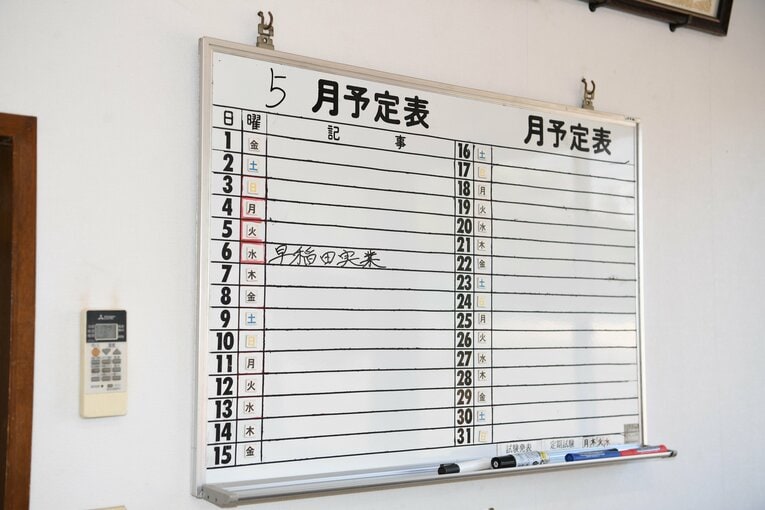 5 月予定表
月予定表
日 曜 記事
1 金
2 土
3 日
4 月
5 火
6 水 早稲田実業
7 木
8 金
9 土
10 日
11 月
12 火
13 水
14 木
15 金
16 土
17 日
18 月
19 火
20 水
21 木
22 金
23 土
24 日
25 月
26 火
27 水
28 木
29 金
30 土
31 日
試験発表 定期試験 月木火水